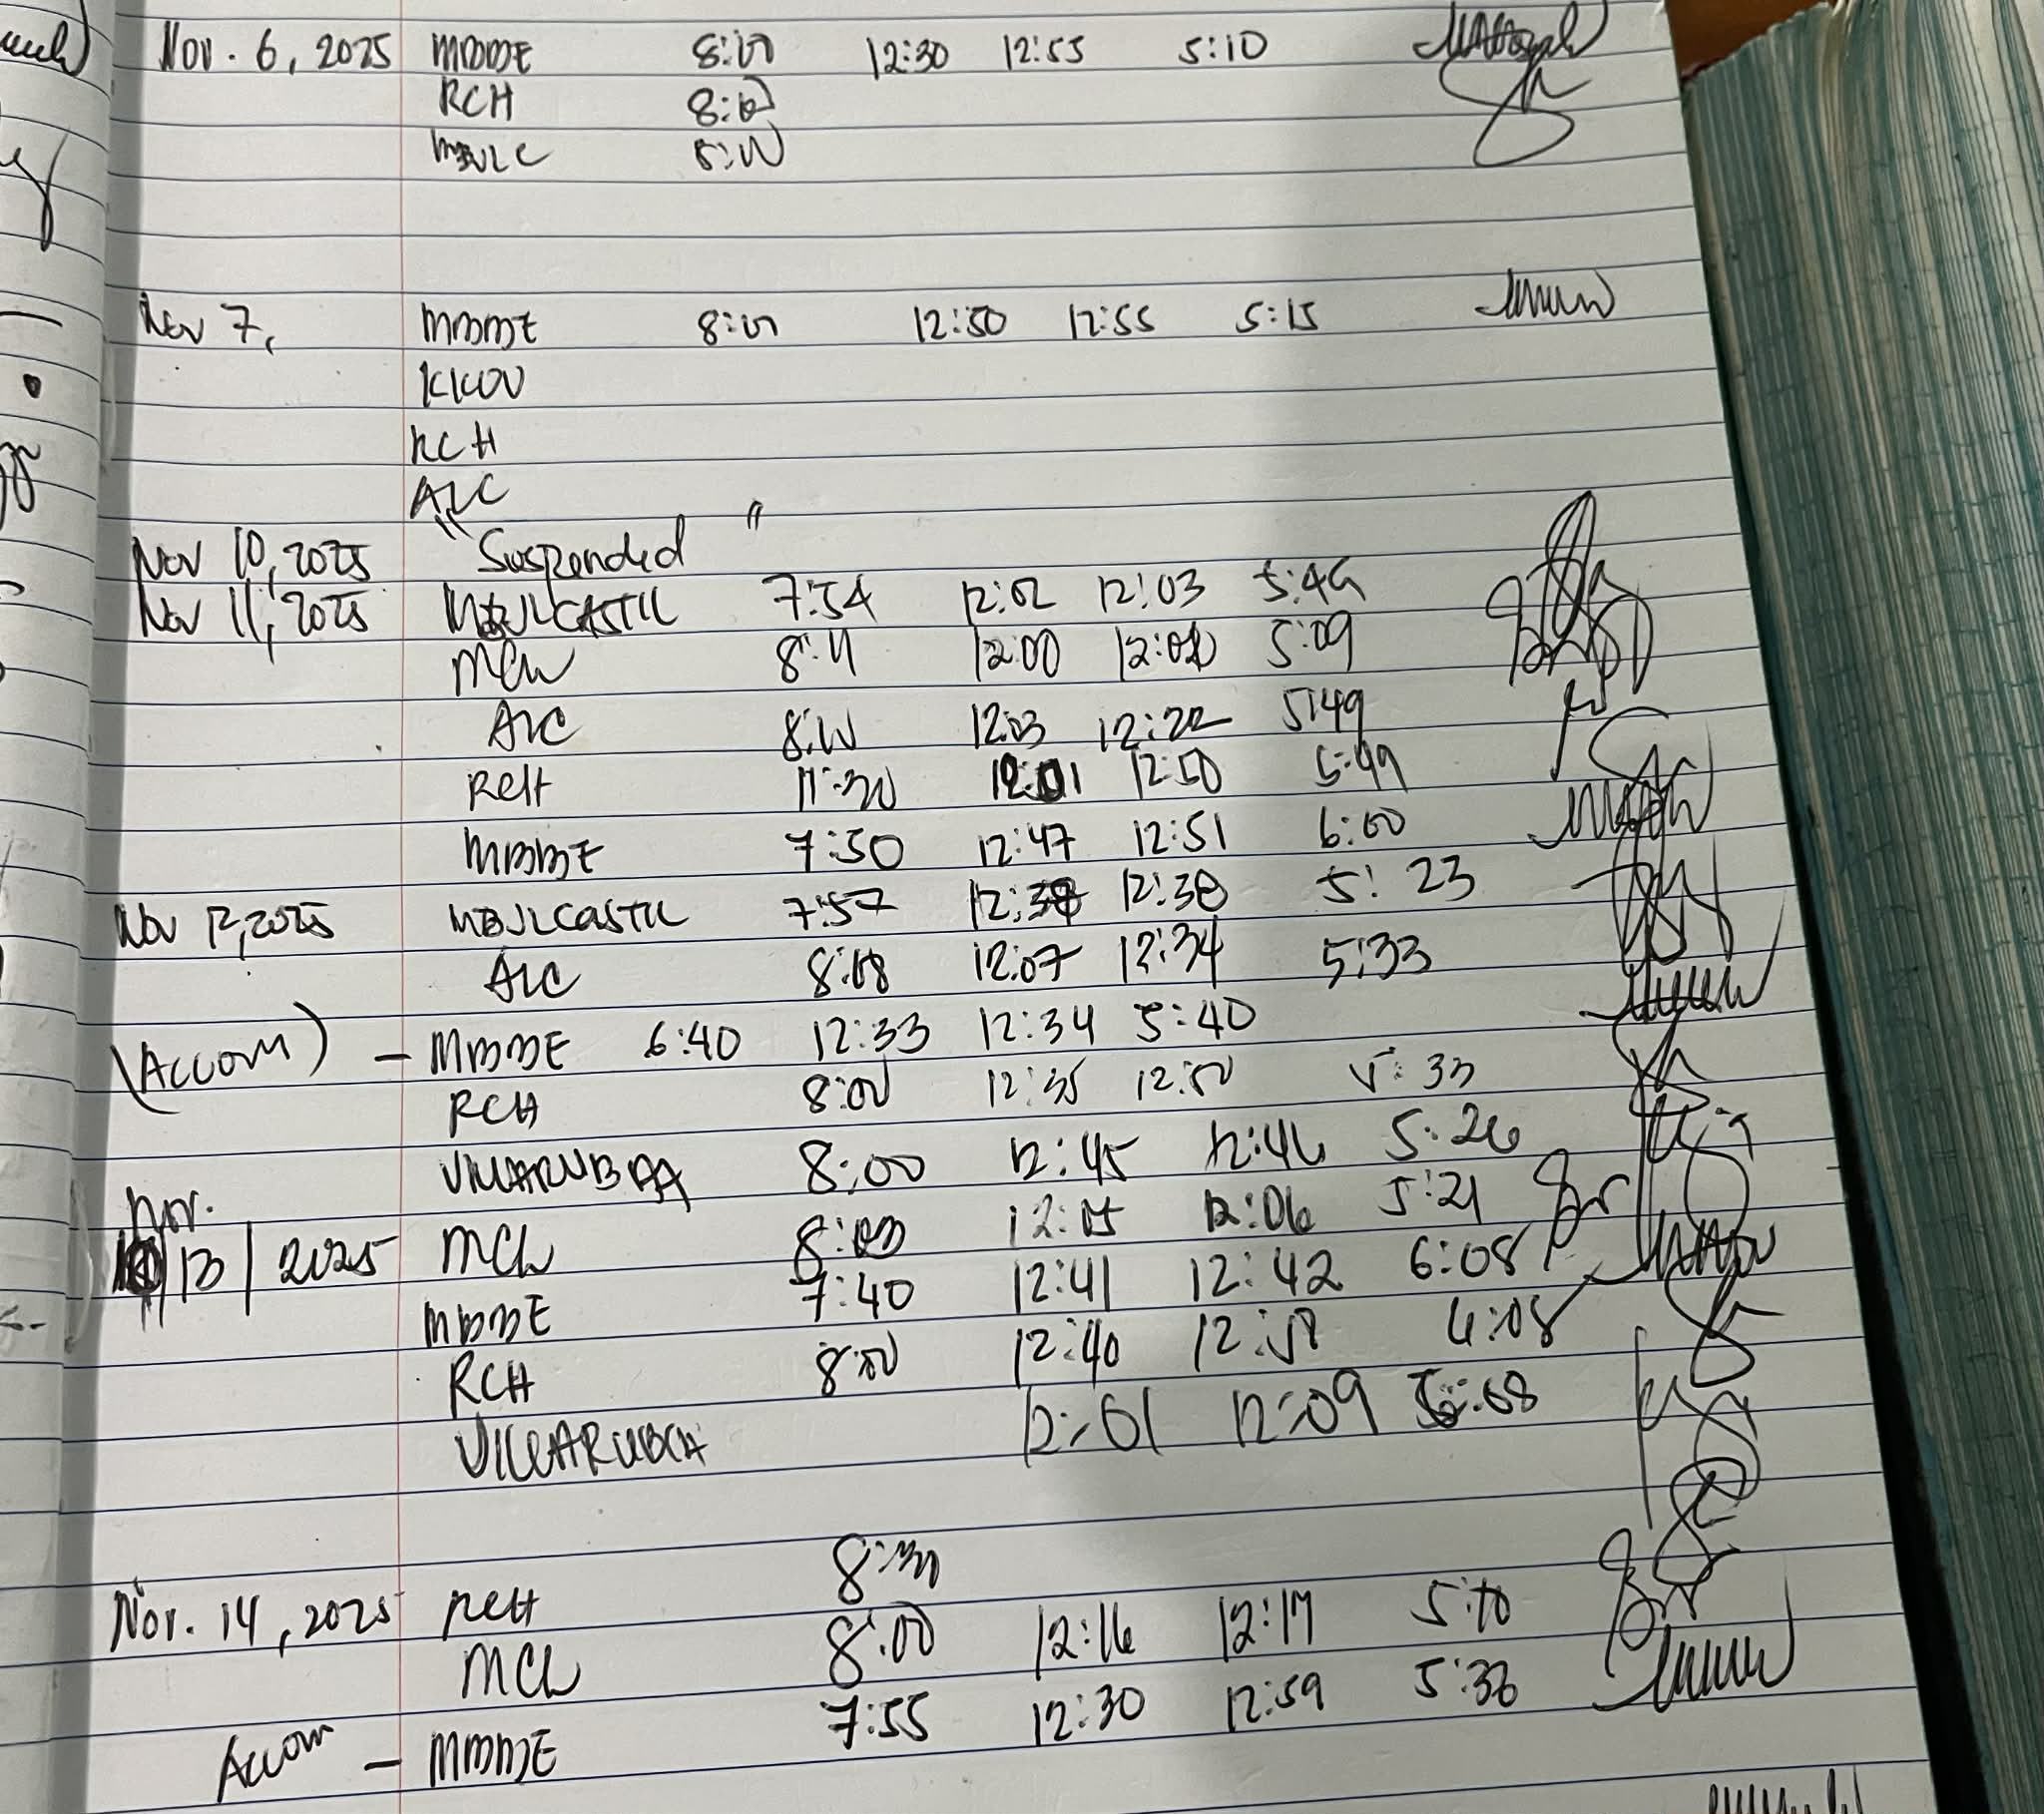 Nov. 6, 2025 MBDDE 8:00 12:30 12:53 5:10
RCH 8:00
8:00
Nov 7, MBDDE 8:00 12:50 12:55 5:15
KKOV
RCH
ALC
Nov 10, 2025 "Suspended"
Nov 11, 2025 MBJLCASTIL 7:54 12:02 12:03 5:49
MCW 8:11 12:00 5:09
ALC 8:00 12:03 12:22 5:49
RCH 11:30 12:01 12:50 5:49
MBDDE 7:50 12:47 12:51 6:00
Nov 12, 2025 MBJLCASTIL 7:57 12:38 5:23
ALC 8:08 12:07 12:34 5:33
(ACCOM) - MBDDE 6:40 12:33 12:34 5:40
RCH 8:00 12:35 12:50 5:33
VILLARUBIA 8:00 12:45 12:46 5:26
Nov. 13 / 2025 MCW 8:03 12:05 12:06 5:21
MBDDE 7:40 12:41 12:42 6:08
RCH 8:00 12:40 12:58 6:08
VILLARUBIA 12:01 12:09
Nov. 14, 2025 RCH 8:30
MCW 8:00 12:16 12:17 5:10
Accom - MBDDE 7:55 12:30 12:59 5:38